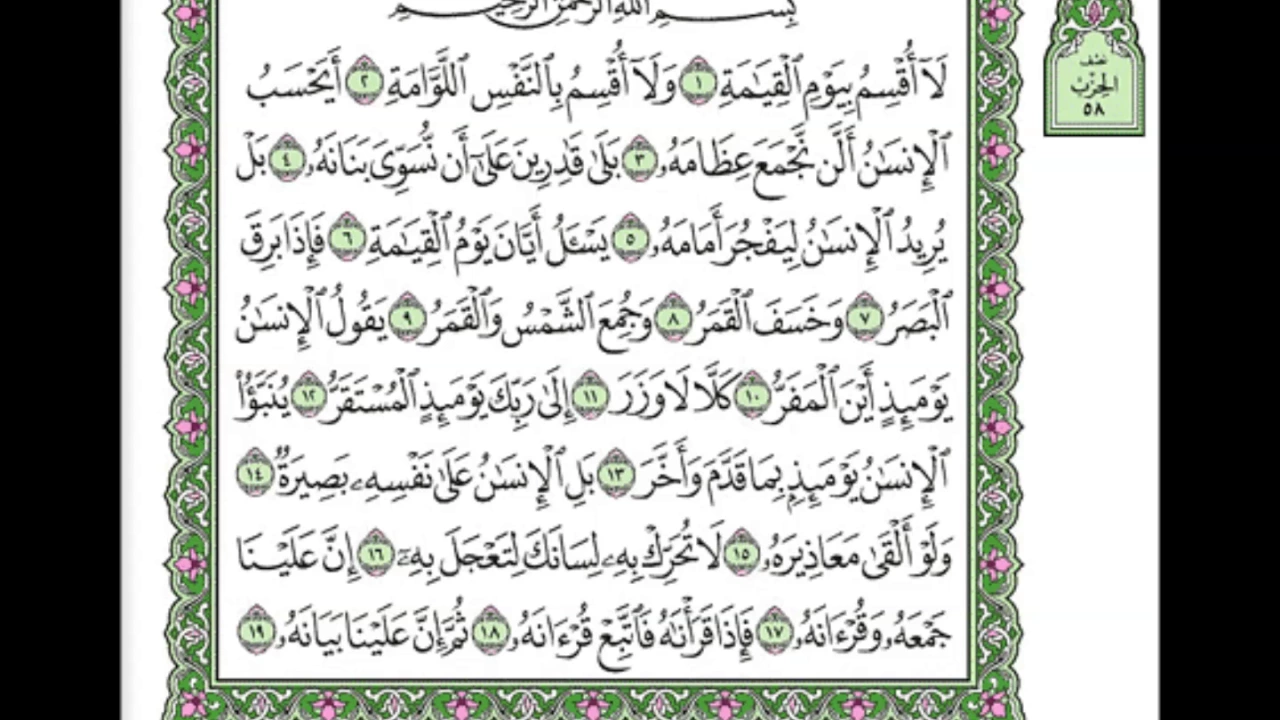 بِسْمِ اللَّهِ الرَّحْمَٰنِ الرَّحِيمِ
لَآ أُقْسِمُ بِيَوْمِ ٱلْقِيَٰمَةِ ١ وَلَآ أُقْسِمُ بِٱلنَّفْسِ ٱللَّوَّامَةِ ٢ أَيَحْسَبُ
ٱلْإِنسَٰنُ أَلَّن نَّجْمَعَ عِظَامَهُۥ ٣ بَلَىٰ قَٰدِرِينَ عَلَىٰٓ أَن نُّسَوِّىَ بَنَانَهُۥ ٤ بَلْ
يُرِيدُ ٱلْإِنسَٰنُ لِيَفْجُرَ أَمَامَهُۥ ٥ يَسْـَٔلُ أَيَّانَ يَوْمُ ٱلْقِيَٰمَةِ ٦ فَإِذَا بَرِقَ
ٱلْبَصَرُ ٧ وَخَسَفَ ٱلْقَمَرُ ٨ وَجُمِعَ ٱلشَّمْسُ وَٱلْقَمَرُ ٩ يَقُولُ ٱلْإِنسَٰنُ
يَوْمَئِذٍ أَيْنَ ٱلْمَفَرُّ ١٠ كَلَّا لَا وَزَرَ ١١ إِلَىٰ رَبِّكَ يَوْمَئِذٍ ٱلْمُسْتَقَرُّ ١٢ يُنَبَّؤُا۟
ٱلْإِنسَٰنُ يَوْمَئِذٍۭ بِمَا قَدَّمَ وَأَخَّرَ ١٣ بَلِ ٱلْإِنسَٰنُ عَلَىٰ نَفْسِهِۦ بَصِيرَةٌ ١٤
وَلَوْ أَلْقَىٰ مَعَاذِيرَهُۥ ١٥ لَا تُحَرِّكْ بِهِۦ لِسَانَكَ لِتَعْجَلَ بِهِۦٓ ١٦ إِنَّ عَلَيْنَا
جَمْعَهُۥ وَقُرْءَانَهُۥ ١٧ فَإِذَا قَرَأْنَٰهُ فَٱتَّبِعْ قُرْءَانَهُۥ ١٨ ثُمَّ إِنَّ عَلَيْنَا بَيَانَهُۥ ١٩
نصف
الحِزْبُ
٥٨